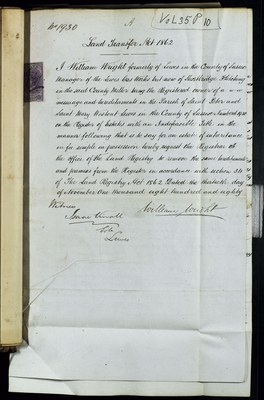 No 1930
A
Vol 35 P 10
Land Transfer Act 1862
I William Wright formerly of Lewes in the County of Sussex
Manager of the Lewes Gas Works but now of
in the said County Miller being the Registered owner of a
messuage and hereditaments in the Parish of Saint Peter and
Saint Mary Westout Lewes in the County of Sussex Numbered 930
on the Register of Estates with an Indefeasible Title in the
manner following that is to say for an estate of inheritance
in fee simple in possession hereby request the Registrar at
the office of the Land Registry to remove the same hereditaments
and premises from the Register in accordance with section 34
of The Land Registry Act 1862 Dated the thirtieth day
of November One thousand eight hundred and eighty
Witness
William Wright
Lewes